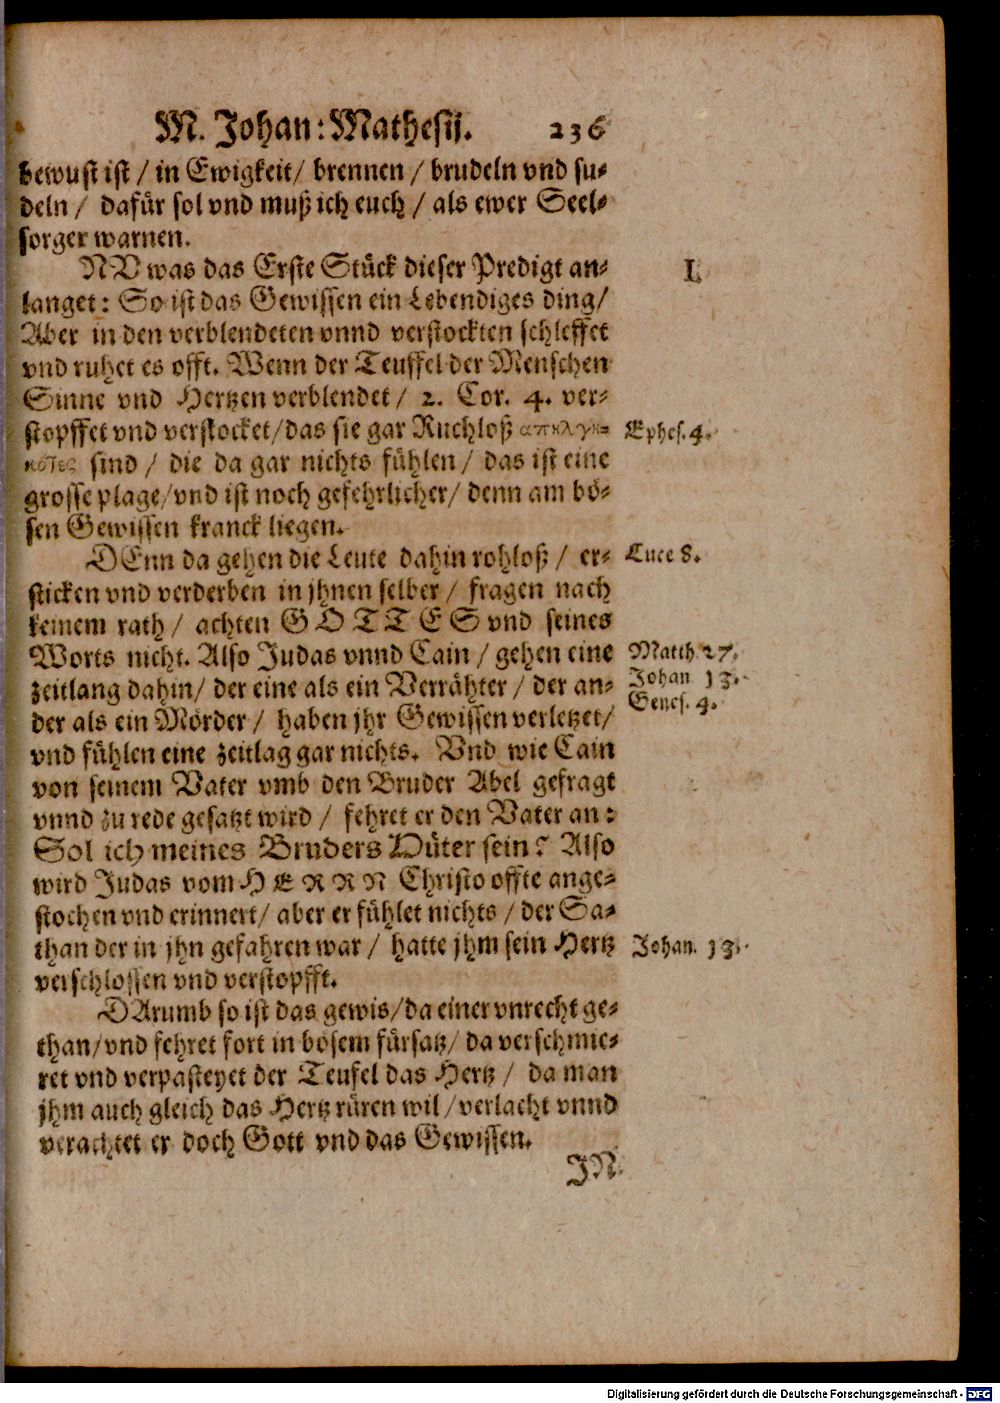 M. Johan: Mathesij. 236
bewust ist / in Ewigkeit / brennen / brudeln vnd su-
deln / dafür sol vnd muß ich euch / als ewer Seel-
sorger warnen.
NV was das Erste Stück dieser Predigt an-
langet: So ist das Gewissen ein Lebendiges ding /
I.
Aber in den verblendeten vnnd verstockten schleffet
vnd ruhet es offt. Wenn der Teuffel der Menschen
Sinne vnd Hertzen verblendet / 2. Cor. 4. ver-
stopffet vnd verstocket / das sie gar Ruchloß απηλγη-
Ephes. 4.
κότες sind / die da gar nichts fühlen / das ist eine
grosse plage / vnd ist noch gefehrlicher / denn am bö-
sen Gewissen kranck liegen.
DEnn da gehen die Leute dahin rohloß / er-
Luce 8.
sticken vnd verderben in jhnen selber / fragen nach
keinem rath / achten GOTTES vnd seines
Worts nicht. Also Judas vnnd Cain / gehen eine
Matth 27.
zeitlang dahin / der eine als ein Verrähter / der an-
Johan 13.
der als ein Mörder / haben jhr Gewissen verletzet /
Genes. 4.
vnd fühlen eine zeitlag gar nichts. Vnd wie Cain
von seinem Vater vmb den Bruder Abel gefragt
vnnd zu rede gesatzt wird / fehret er den Vater an:
Sol ich meines Bruders Hüter sein? Also
wird Judas vom HERRN Christo offte ange-
stochen vnd erinnert / aber er fühlet nichts / der Sa-
than der in jhn gefahren war / hatte jhm sein Hertz
Johan. 13.
verschlossen vnd verstopfft.
DArumb so ist das gewis / da einer vnrecht ge-
than / vnd fehret fort in bösem fürsatz / da verschmie-
ret vnd verpasteyet der Teufel das Hertz / da man
jhm auch gleich das Hertz rüren wil / verlacht vnnd
verachtet er doch Gott vnd das Gewissen.
JN
Digitalisierung gefördert durch die Deutsche Forschungsgemeinschaft - DFG